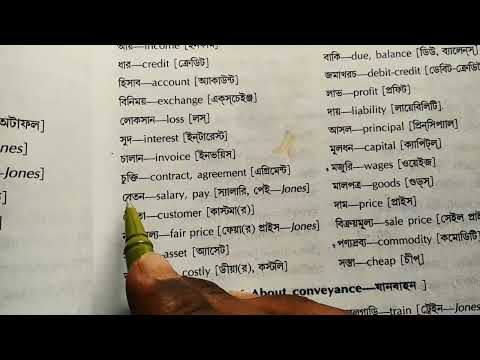 আয়—income [ইনকাম]
ধার—credit [ক্রেডিট]
হিসাব—account [অ্যাকাউন্ট]
বিনিময়—exchange [এক্সচেইঞ্জ]
লোকসান—loss [লস্]
সুদ—interest [ইন্‌টারেস্ট]
চালান—invoice [ইনভয়িস]
চুক্তি—contract, agreement [এগ্রিমেন্ট]
বেতন—salary, pay [স্যালারি, পেই—Jones]
customer [কাস্টমা(র)]
fair price [ফেয়া(র) প্রাইস—Jones]
asset [অ্যাসেট]
costly [ডীয়া(র), কস্টলি]
বাকি—due, balance [ডিউ, ব্যালেন্স]
জমাখরচ—debit-credit [ডেবিট-ক্রেডি
লাভ—profit [প্রফিট]
দায়—liability [লায়েবিলিটি]
আসল—principal [প্রিন্‌সিপ্যাল]
মূলধন—capital [ক্যাপিট্‌ল]
মজুরি—wages [ওয়েইজ]
মালপত্র—goods [গুড্‌স]
দাম—price [প্রাইস]
বিক্রয়মূল্য—sale price [সেইল প্রাই
পণ্যদ্রব্য—commodity [কমোডিটি]
সস্তা—cheap [চীপ্]
About conveyance—যানবাহন ]
train [ট্রেইন—Jones
অটাফল]
—Jones]
Jones]